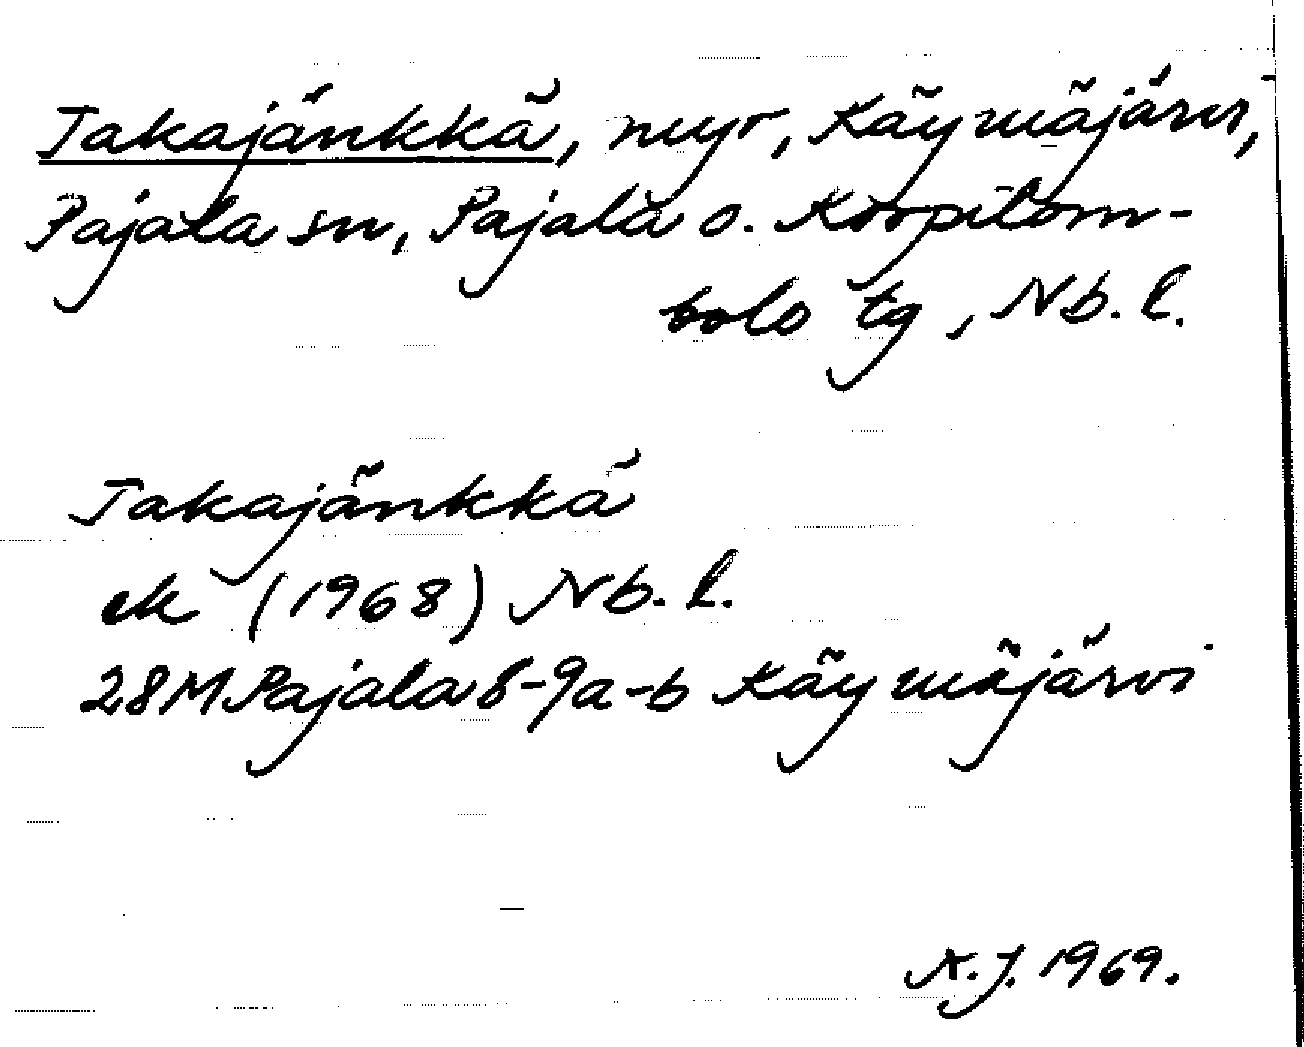 Takajänkkä, myr, Käymäjärvi,
Pajala sn, Pajala o. Korpilom-
bolo tg, Nb. l.
Takajänkkä
ek (1968) Nb. l.
28M Pajala 8-9a-b Käymäjärvi
A.J. 1969.